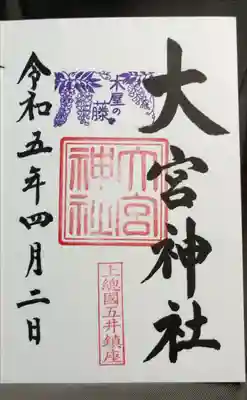 大宮神社
木屋の
藤
大宮
神社
上總國五井鎮座
令和五年四月二日